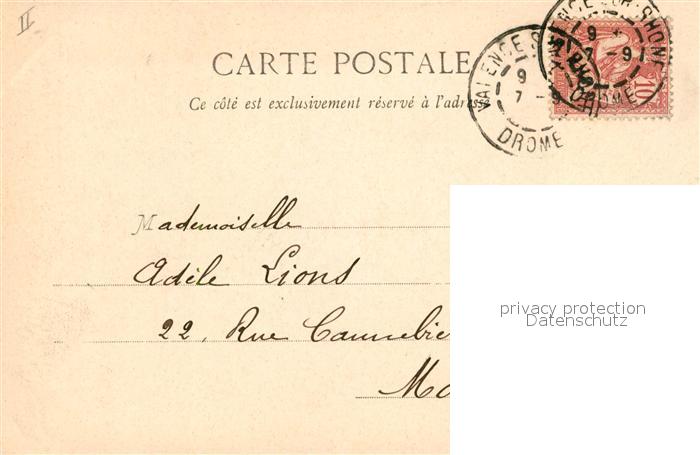 II
CARTE POSTALE
Ce côté est exclusivement réservé à l'adresse
VALENCE S
9
7 -9
DROME
VALENCE SUR RHONE
9
7 -9
DROME
10
Mademoiselle
Adèle Lions
22, Rue Cannebiè
Ma
privacy protection
Datenschutz